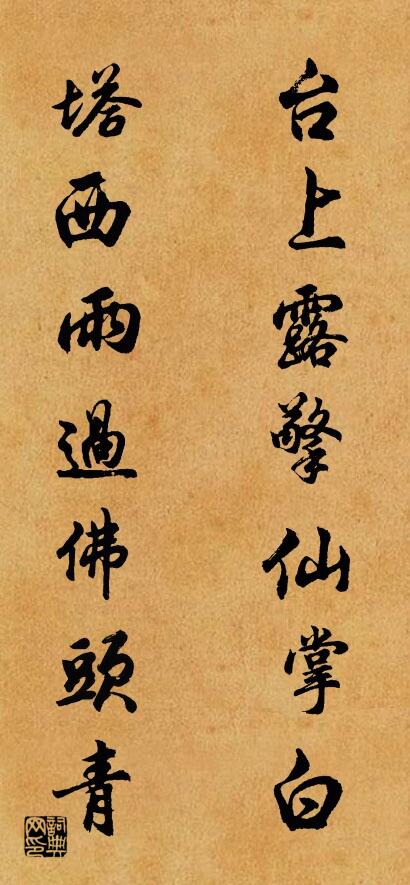 台上露擎仙掌白
塔西雨過佛頭青
詞典網印